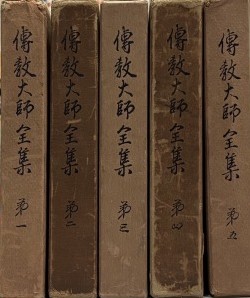 傳敎大師全集 第一
傳敎大師全集 第二
傳敎大師全集 第三
傳敎大師全集 第四
傳敎大師全集 第五